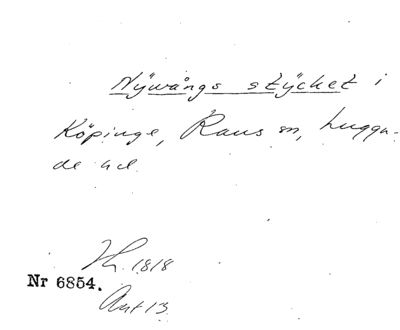 Nÿwångs stÿcket i
Köpinge, Raus sn, Luggu-
de hd.
1818
Nr 6854.
Akt 13